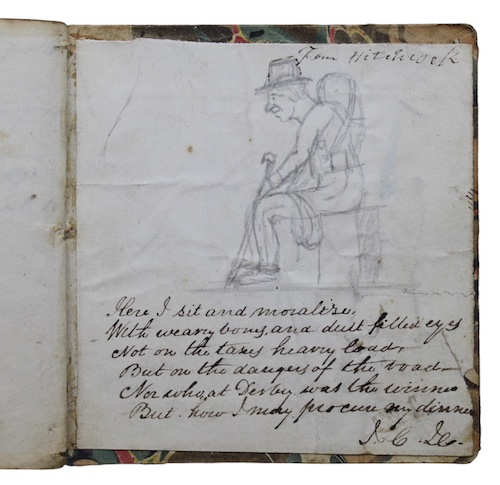 Tom Hitchcock
Here I sit and moralize,
With weary bones, and dust filled eyes
Not on the taxes heavy load,
But on the dangers of the road
Nor who, at Derby was the winner
But how I may procure my dinner